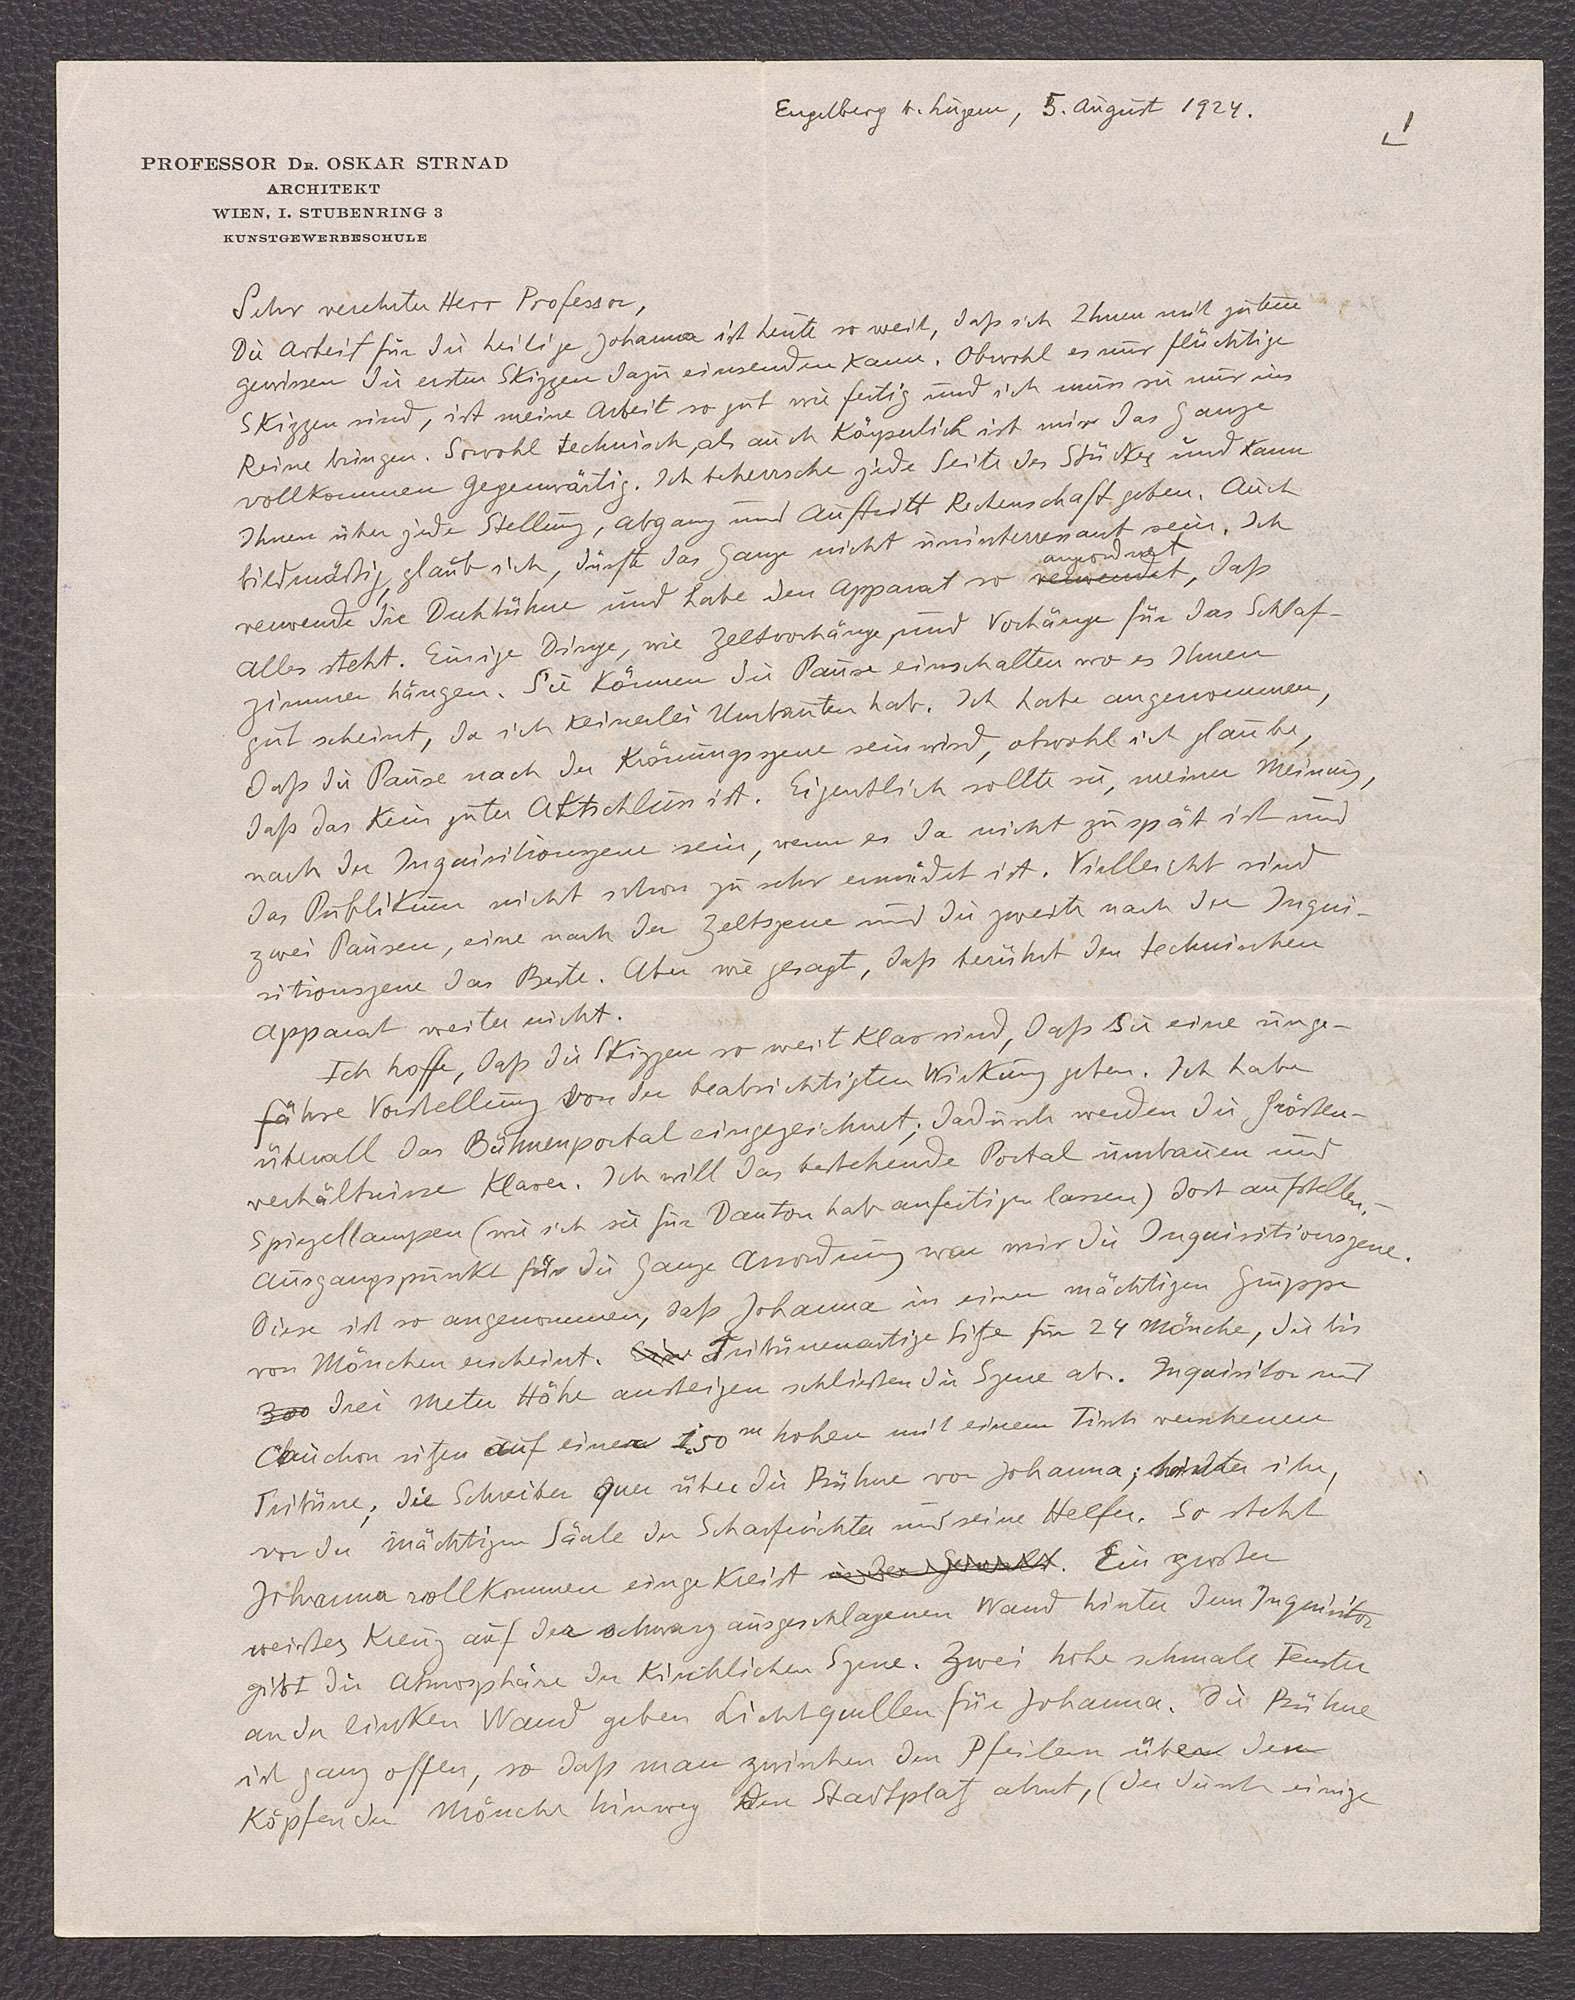 Engelberg b. Luzern, 5. August 1924.
1
PROFESSOR DR. OSKAR STRNAD
ARCHITEKT
WIEN, I. STUBENRING 3
KUNSTGEWERBESCHULE
Sehr verehrter Herr Professor,
Die Arbeit für die heilige Johanna ist heute so weit, daß ich Ihnen mit gutem
gewissen die ersten Skizzen dazu einsenden kann. Obwohl es nur flüchtige
Skizzen sind, ist meine Arbeit so gut wie fertig und ich muss sie nur ins
Reine bringen. Sowohl technisch, als auch Körperlich ist mir das Ganze
vollkommen Gegenwärtig. Ich beherrsche jede Seite des Stückes und kann
Ihnen über jede Stellung, Abgang und Auftritt Rechenschaft geben. Auch
bildmäßig, glaub ich, dürfte das Ganze nicht uninteressant sein. Ich
verwende die Drehbühne und habe den Apparat so verwendet angeordnet, daß
alles steht. Einige Dinge, wie Zeltvorhänge, und Vorhänge für das Schlaf-
zimmer hängen. Sie können die Pause einschalten wo es Ihnen
gut scheint, da ich keinerlei Umbauten hab. Ich habe angenommen,
daß die Pause nach der Krönungszene sein wird, obwohl ich glaube,
daß das kein guter Aktschluss ist. Eigentlich sollte sie, meiner Meinung,
nach der Inquisitionszene sein, wenn es da nicht zu spät ist und
das Publikum nicht schon zu sehr ermüdet ist. Vielleicht sind
zwei Pausen, eine nach der Zeltszene und die zweite nach der Inqui-
sitionszene das Beste. Aber wie gesagt, daß berührt den technischen
Apparat weiter nicht.
Ich hoffe, daß die Skizzen so weit klar sind, daß Sie eine unge-
fähre Vorstellung von der beabsichtigten Wirkung geben. Ich habe
überall das Bühnenportal eingezeichnet; dadurch werden die Größen-
verhältnisse klarer. Ich will das bestehende Portal umbauen und
Spiegellampen (wie ich sie für Danton hab anfertigen lassen) dort aufstellen.-
Ausgangspunkt für die ganze Anordnung war mir die Inquisitionszene.
Diese ist so angenommen, daß Johanna in einer mächtigen Gruppe
von Mönchen erscheint. Eine Tribünenartige Sitze für 24 Mönche, die bis
300 drei Meter Höhe ansteigen schließen die Szene ab. Inquisitor und
Cauchon sitzen auf einer 1.50 m hohen mit einem Tisch versehenen
Tribüne; die Schreiber quer über die Bühne vor Johanna; hinter ihr,
vor der mächtigen Säule der Scharfrichter und seine Helfer. So steht
Johanna vollkommen eingekreist in der Gewalt. Ein großer
weißes Kreuz auf der schwarz ausgeschlagenen Wand hinter dem Inquisitor
gibt die Atmosphäre der kirchlichen Szene. Zwei hohe schmale Fenster
an der linken Wand geben Lichtquellen für Johanna. Die Bühne
ist ganz offen, so daß man zwischen den Pfeilern über den
Köpfen der Mönche hinweg den Stadtplatz ahnt, (der durch einige